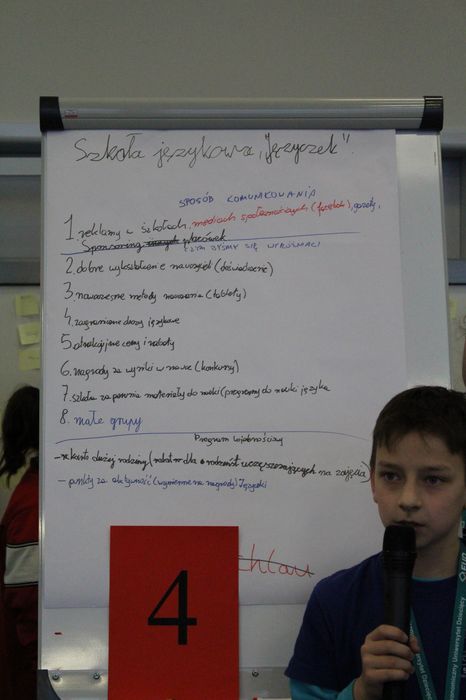 Szkoła językowa "Języczek".
SPOSÓB KOMUNIKOWANIA
1. reklamy w szkołach, mediach społecznościowych (facebook), gazety,
Sponsoring placówek
CZYM BYŚMY SIĘ WYRÓŻNIALI
2. dobre wykształcenie nauczycieli (doświadczenie)
3. nowoczesne metody nauczania (tablety)
4. zagraniczne obozy językowe
5 atrakcyjne ceny i rabaty
6. nagrody za wyniki w nauce (konkursy)
7. szkoła zapewnia materiały do nauki (programy do nauki języka
8. małe grupy
Program lojalnościowy
- karta dużej rodziny (rabat dla rodzeństw uczęszczających na zajęcia)
- punkty za aktywność (wymienne na nagrody) Języczki
4
miczny Uniwersytet Dziecięcy